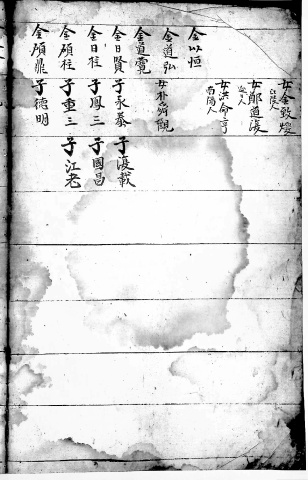 女金致
江陵人
女鄭道
延日人
女洪侖亨
南陽人
金以恒
金道弘
女朴舜觀
金道
金日賢 子永泰 子復載
金日柱 子鳳三 子國昌
金碩柱 子重三 子江老
金碩鼎 子德明